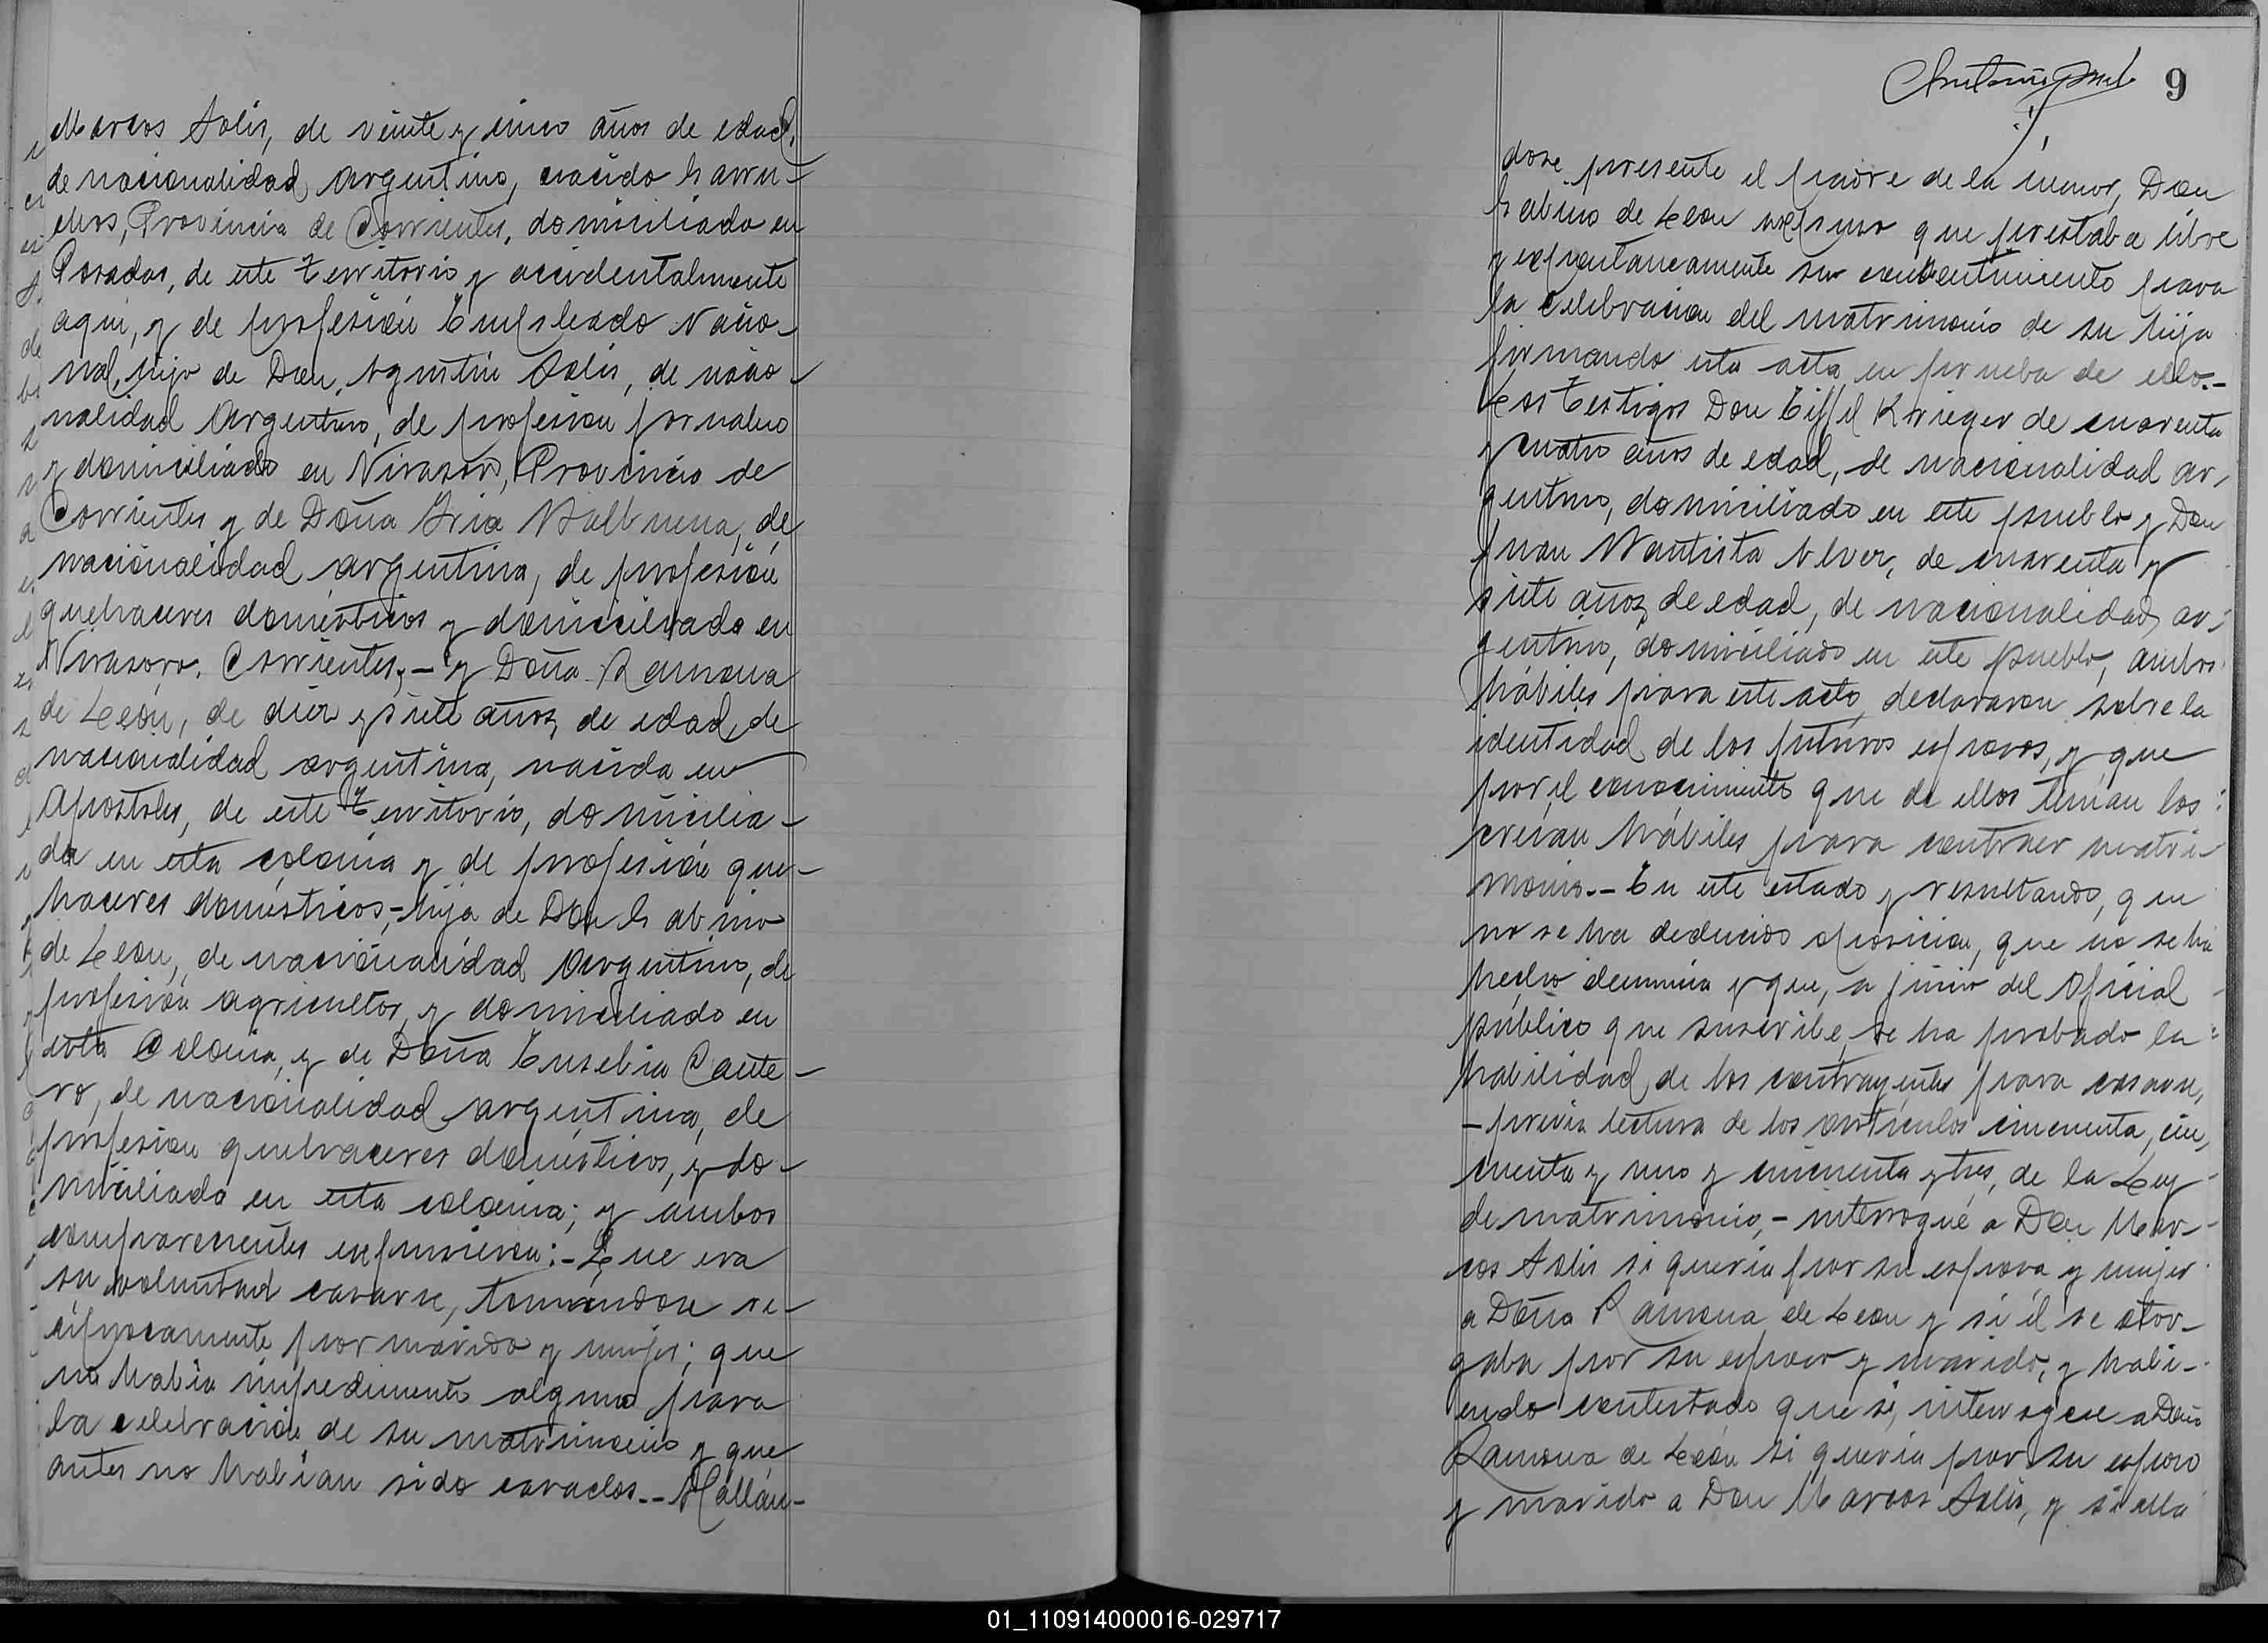 Marcos Solis, de veinte y cinco años de edad,
de nacionalidad argentino, nacido
Provincia de Corrientes, domiciliado en
Posadas, de este Territorio y accidentalmente
aqui, y de profesión Empleado Nacio-
nal, hijo de Don Agustin Solis, de nacio-
nalidad Argentino, de profesion jornalero
y domiciliado en Virasoro, Provincia de
Corrientes y de Doña Valbuena, de
nacionalidad argentina, de profesión
quehaceres domésticos y domiciliada en
Virasoro. Corrientes,- y Doña Ramona
de León, de diez y siete años, de edad, de
nacionalidad argentina, nacida en
Apostoles, de este Territorio, domicilia-
da en esta colonia y de profesión que-
haceres domésticos,- hija de Don Sabino
de León, de nacionalidad Argentino, de
profesión agricultor, y domiciliado en
esta Colonia, y de Doña Eusebia Cante-
ro, de nacionalidad argentina, de
profesion quehaceres domésticos, y do-
miciliada en esta colonia; y ambos
comparecientes expusieron:- Que era
su voluntad casarse, tomándose re-
ciprocamente por marido y mujer; que
no habia impedimento alguno para
la celebración de su matrimonio y que
antes no habían sido casados.- Hallán-
9
dose presente el padre de la menor, Don
Sabino de Leon expreso que prestaba libre
y espontaneamente su consentimiento para
la celebracion del matrimonio de su hija
firmando esta acta en prueba de ello.-
Los testigos Don Eiffel Krieger de cuarenta
y cuatro años de edad, de nacionalidad ar-
gentino, domiciliado en este pueblo y Don
Juan Bautista Alvez, de cuarenta y
siete años, de edad, de nacionalidad ar-
gentino, domiciliado en este pueblo, ambos
hábiles para este acto, declararon sobre la
identidad de los futuros esposos, y que
por el conocimiento que de ellos tenían los
creían hábiles para contraer matri-
monio.- En este estado y resultando, que
no se ha deducido oposicion, que no se ha
hecho denuncia y que, a juicio del oficial
público que suscribe, se ha probado la
habilidad de los contrayentes para casarse,
- previa lectura de los artículos cincuenta, cin-
cuenta y uno y cincuenta y tres, de la Ley
de matrimonio,- interrogué a Don Mar-
cos Solis si queria por su esposa y mujer
a Doña Ramona de Leon y si él se otor-
gaba por su esposo y marido, y habi-
endo contestado que si, interrogué a Doña
Ramona de León si queria por su esposo
y marido a Don Marcos Solis, y si ella
01_110914000016-029717